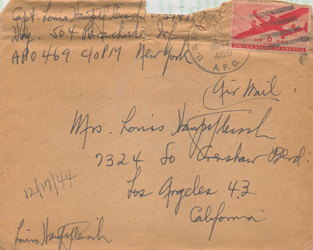 Capt. Louis Hauptfleisch
Hq. 504 Parachute Inf
APO 469 c/o PM New York
A.P.O.
AIR 6 MAIL
UNITED STATES OF AMERICA
Air Mail
Mrs. Louis Hauptfleisch
7324 So Crenshaw Blvd.
Los Angeles 43
California
12/17/44
Louis Hauptfleisch